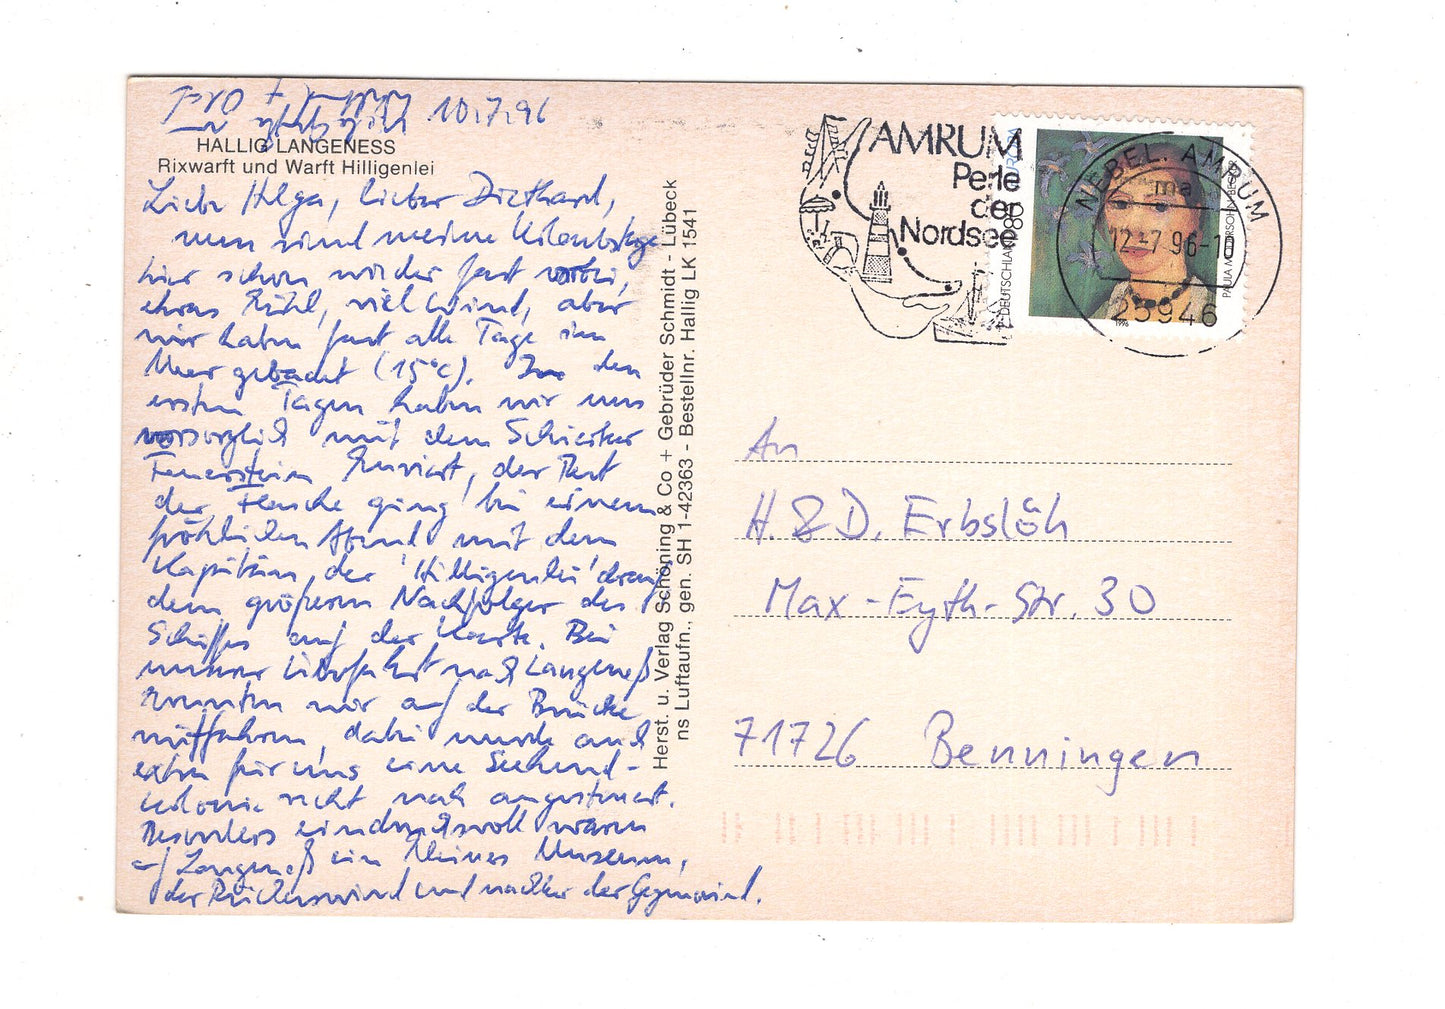 10.7.96
HALLIG LANGENESS
Rixwarft und Warft Hilligenlei
Liebe Helga, lieber Diethard,
nun sind meine Urlaubstage
hier schon wieder fast vorbei,
etwas kühl, viel Wind, aber
wir haben fast alle Tage im
Meer gebadet (15°C). In den
ersten Tagen haben wir uns
vorsorglich mit dem Schierker
Feuerstein kuriert, der Rest
der Flasche ging bei einem
fröhlichen Abend mit dem
Kapitän der 'Hilligenlei' drauf,
dem größeren Nachfolger des
Schiffes auf der Karte. Bei
unserer Überfahrt nach Langeneß
konnten wir auf der Brücke
mitfahren, dabei wurde auch
extra für uns eine Seehund-
kolonie recht nah angesteuert.
Besonders eindrucksvoll waren
auf Langeneß ein kleines Museum,
der Rückenwind und nachher der Gegenwind.
Herst. u. Verlag Schöning & Co + Gebrüder Schmidt - Lübeck
ns Luftaufn., gen. SH 1-42363 - Bestellnr. Hallig LK 1541
AMRUM
Perle
der
Nordsee
DEUTSCHLAND
80
PAULA MODERSOHN-BECKER
1996
NEBEL, AMRUM
ma
12.-7.96-10
25946
An
H. & D. Erbslöh
Max-Eyth-Str. 30
71726 Benningen